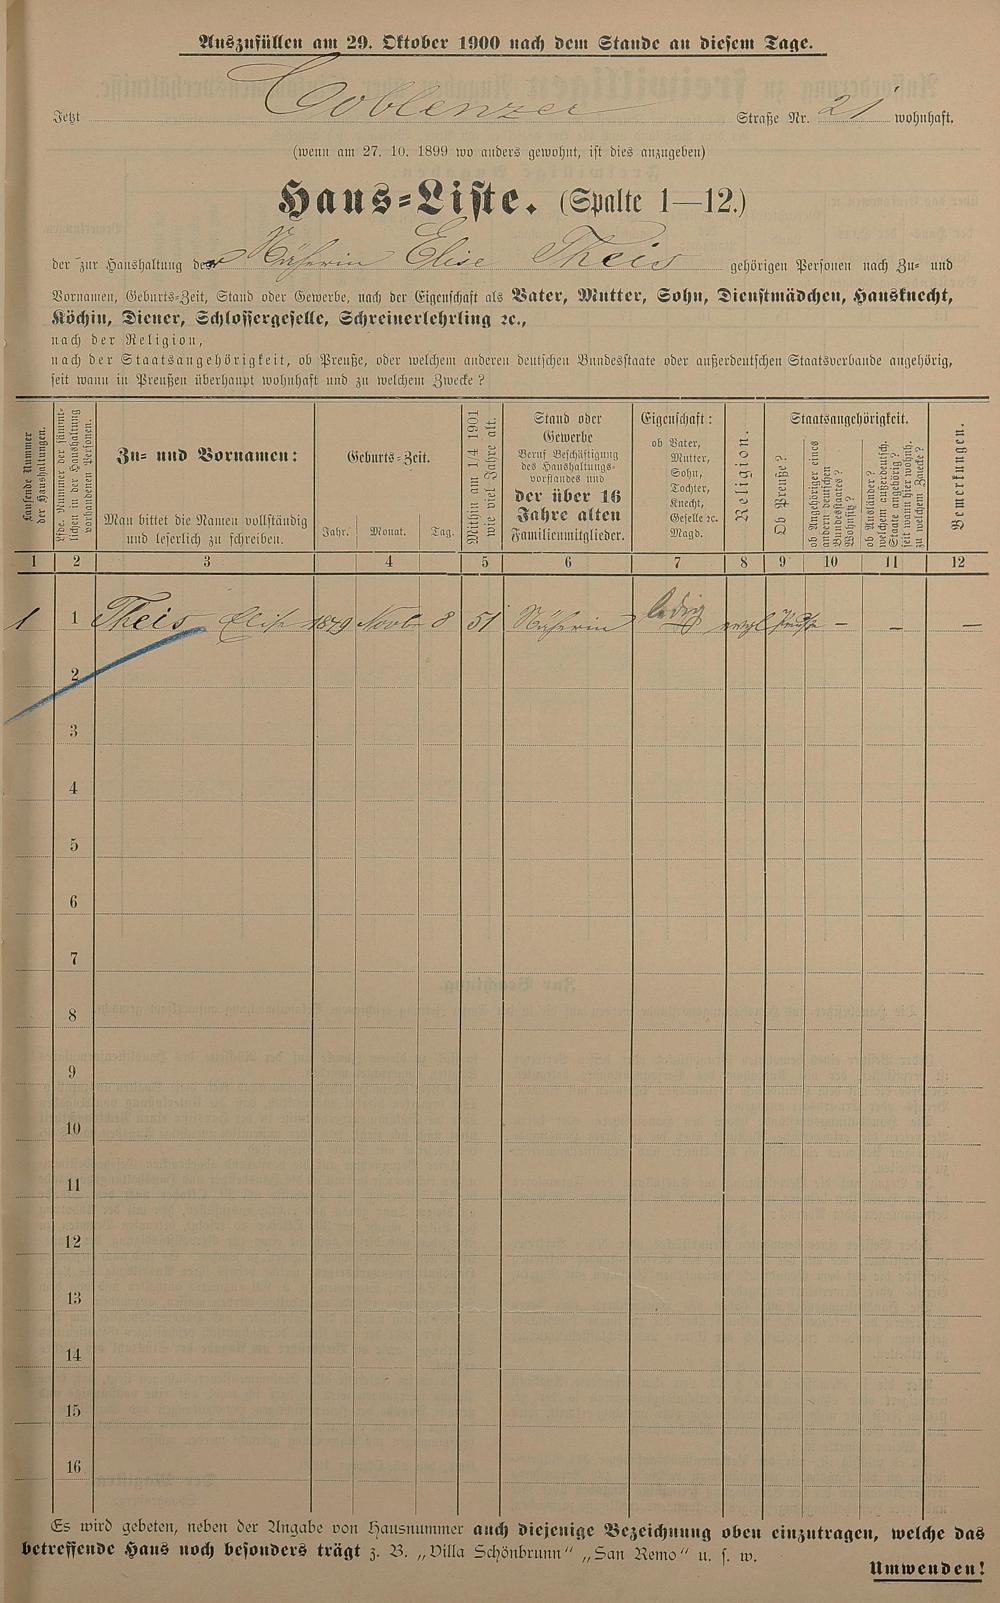 Auszufüllen am 29. Oktober 1900 nach dem Stande an diesem Tage.
Jetzt Coblenzer Straße Nr. 21 wohnhaft.
(wenn am 27. 10. 1899 wo anders gewohnt, ist dies anzugeben)
Haus=Liste. (Spalte 1—12.)
der zur Haushaltung der Näherin Elise Theis gehörigen Personen nach Zu= und
Vornamen, Geburts=Zeit, Stand oder Gewerbe, nach der Eigenschaft als Vater, Mutter, Sohn, Dienstmädchen, Hausknecht,
Köchin, Diener, Schlossergeselle, Schreinerlehrling ꝛc.,
nach der Religion,
nach der Staatsangehörigkeit, ob Preuße, oder welchem anderen deutschen Bundesstaate oder außerdeutschen Staatsverbande angehörig,
seit wann in Preußen überhaupt wohnhaft und zu welchem Zwecke?
Laufende Nummer
der Haushaltungen.
Lfde. Nummer der sämmt=
lichen in der Haushaltung
vorhandenen Personen.
Zu= und Vornamen:
Man bittet die Namen vollständig
und leserlich zu schreiben.
Geburts=Zeit.
Jahr. Monat. Tag.
Mithin am 1/4 1901
wie viel Jahre alt.
Stand oder
Gewerbe
Beruf Beschäftigung
des Haushaltungs=
vorstandes und
der über 16
Jahre alten
Familienmitglieder.
Eigenschaft:
ob Vater,
Mutter,
Sohn,
Tochter,
Knecht,
Geselle ꝛc.
Magd.
Religion.
Staatsangehörigkeit.
Ob Preuße?
ob Angehöriger eines
andern deutschen
Bundesstaates?
Wohnsitz?
ob Ausländer?
welchem außerdeutsch.
Staate angehörig?
seit wann hier wohnh.
zu welchem Zwecke?
Bemerkungen.
1 2 3 4 5 6 7 8 9 10 11 12
1 1 Theis Elise 1849 Novb 8 51 Näherin ledig evgl Preuße – – –
2
3
4
5
6
7
8
9
10
11
12
13
14
15
16
Es wird gebeten, neben der Angabe von Hausnummer auch diejenige Bezeichnung oben einzutragen, welche das
betreffende Haus noch besonders trägt z. B. „Villa Schönbrunn“ „San Remo“ u. s. w.
Umwenden!